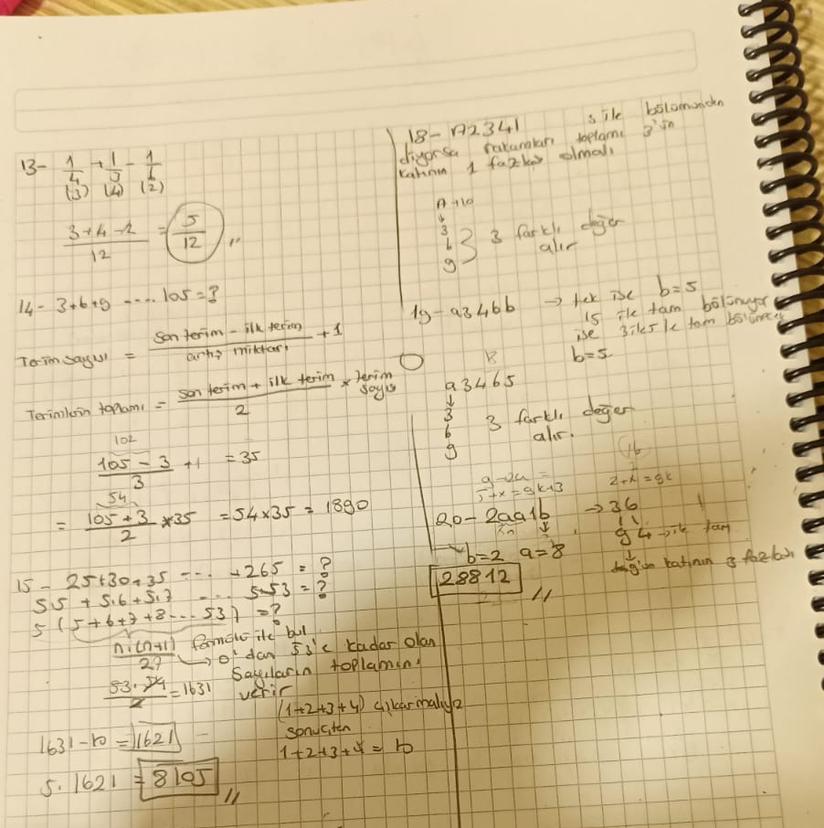 13- 1/4 + 1/3 - 1/6
(3) (4) (2)
3+4-2/12 = 5/12 //
14- 3+6+9 ---- 105=?
Terim sayısı = son terim - ilk terim/artış miktarı + 1
Terimlerin toplamı = son terim + ilk terim/2 * terim sayısı
102
105-3/3 +1 =35
54
= 105+3/2 *35 = 54*35 = 1890
15- 25+30+35 --- +265 = ?
5.5 + 5.6+5.7 --- 5.53 = ?
5 (5+6+7+8--- 53) =?
n.(n+1)/2 formülü ile bul
→ 0'dan 53'e kadar olan
sayıların toplamını
verir
53.54/2 = 1631
(1+2+3+4) çıkarmalıyız
sonuçtan
1+2+3+4 = 10
1631-10 = 1621
5. 1621 = 8105 //
18- A2341 3 ile bölümünden
diyorsa rakamları toplamı 3'ün
katının 1 fazlası olmalı
A+10
↓
3
6
9
3 farklı değer
alır
19- a346b → tek ise b=5
15 ile tam bölünüyor
ise 3 ile 5 le tam bölünecek
b=5
a3465
↓
3
6
9
3 farklı değer
alır.
20- 2aa1b → 36
9 4 → ile tam
b=2 a=8
28812 //